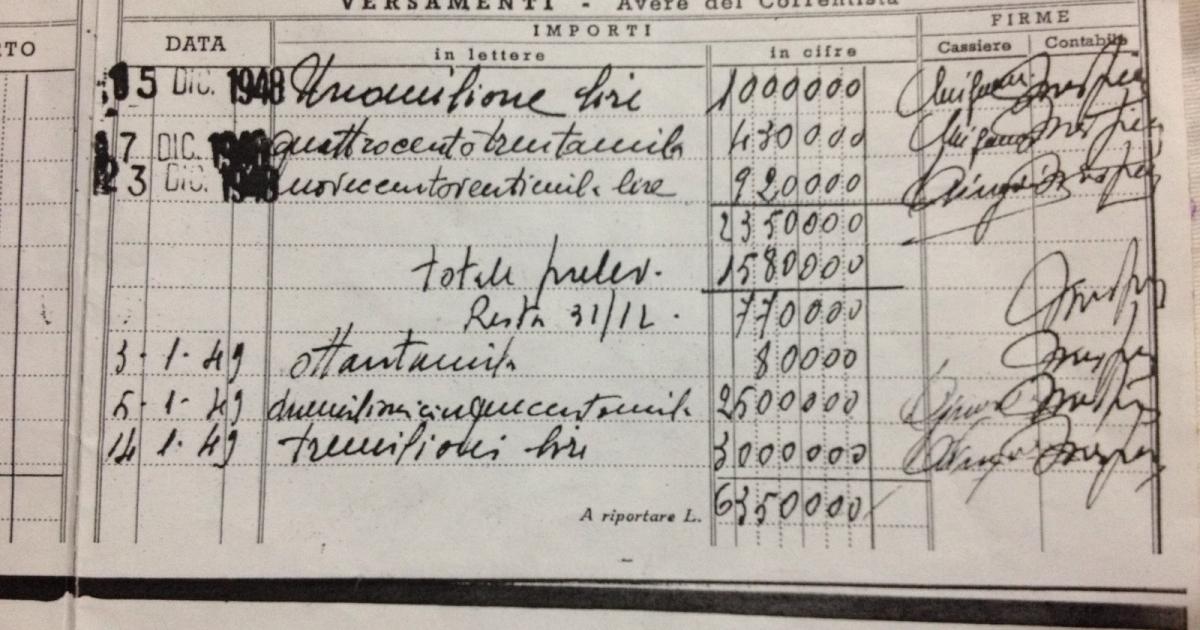 VERSAMENTI - Avere del Correntista
IMPORTI
FIRME
DATA
in lettere
in cifre
Cassiere
Contabile
15 DIC. 1948 Unomilione lire 1000000
17 DIC. 1948 quattrocentotrentamila 430000
23 DIC. 1948 novecentoventimila lire 920000
2350000
totale prelev. 1580000
Resta 31/12. 770000
3-1-49 ottantamila 80000
5-1-49 duemilionicinquecentomila 2500000
14 1-49 tremilioni lire 3000000
A riportare L. 6350000